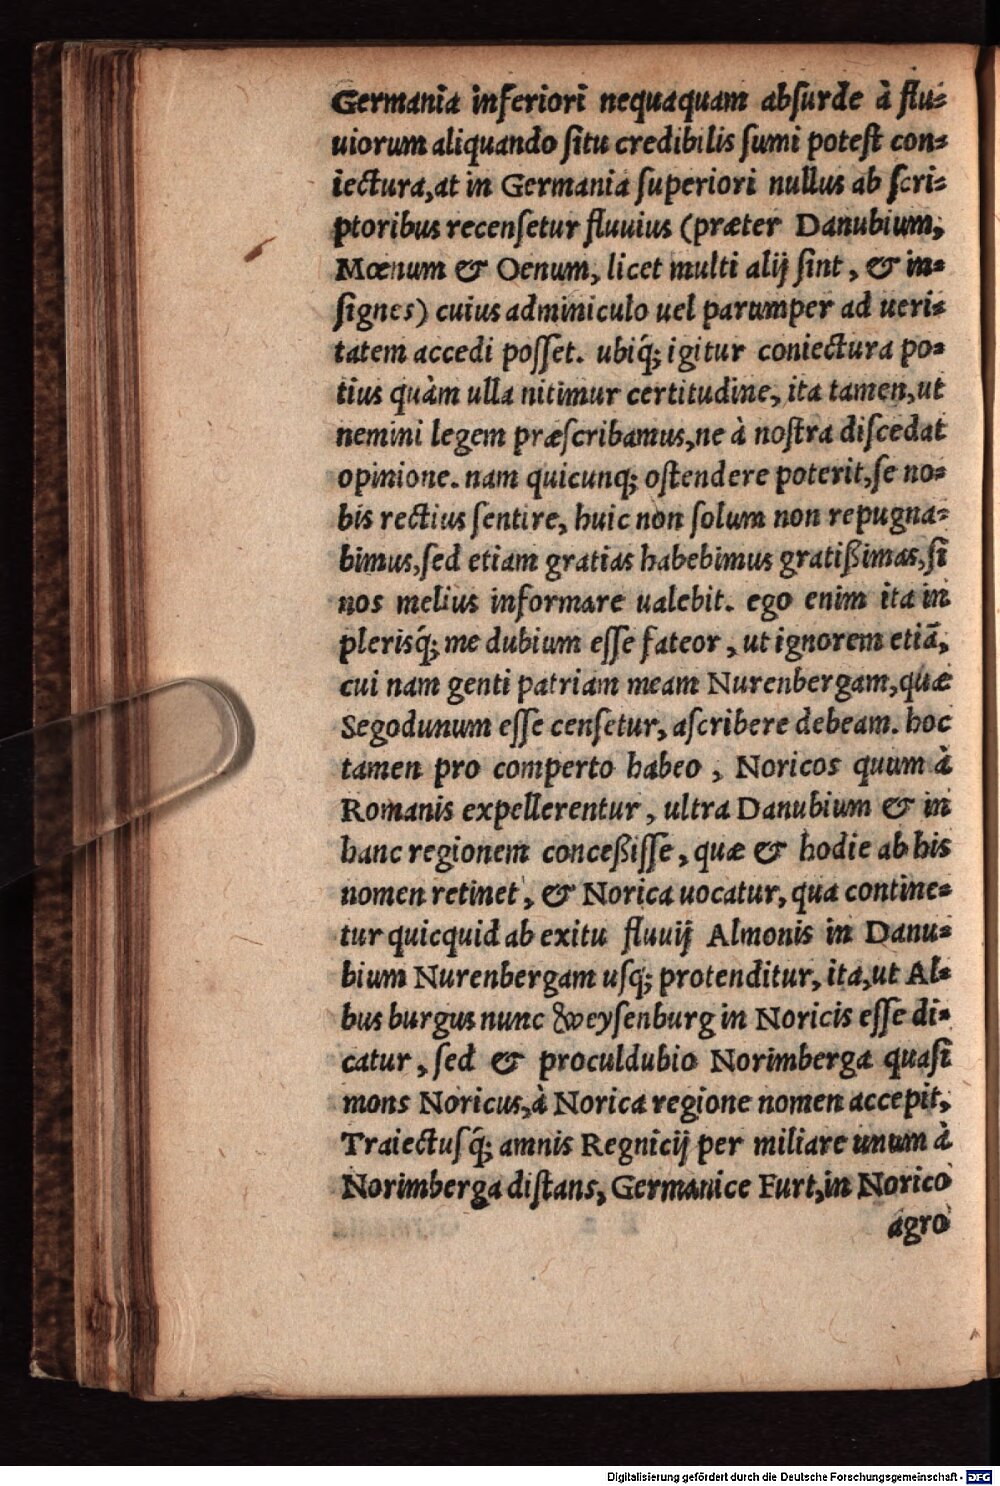 Germania inferiori nequaquam absurde à flu-
uiorum aliquando situ credibilis sumi potest con-
iectura, at in Germania superiori nullus ab scri-
ptoribus recensetur fluuius (præter Danubium,
Mœnum & Oenum, licet multi alij sint, & in-
signes) cuius adminiculo uel parumper ad ueri-
tatem accedi posset. ubiq́; igitur coniectura po-
tius quàm ulla nitimur certitudine, ita tamen, ut
nemini legem præscribamus, ne à nostra discedat
opinione. nam quicunq; ostendere poterit, se no-
bis rectius sentire, huic non solum non repugna-
bimus, sed etiam gratias habebimus gratißimas, si
nos melius informare ualebit. ego enim ita in
plerisq́; me dubium esse fateor, ut ignorem etiã,
cui nam genti patriam meam Nurenbergam, quæ
Segodunum esse censetur, ascribere debeam. hoc
tamen pro comperto habeo, Noricos quum à
Romanis expellerentur, ultra Danubium & in
hanc regionem conceßisse, quæ & hodie ab his
nomen retinet, & Norica uocatur, qua contine-
tur quicquid ab exitu fluuij Almonis in Danu-
bium Nurenbergam usq; protenditur, ita, ut Al-
bus burgus nunc Weysenburg in Noricis esse di-
catur, sed & proculdubio Norimberga quasi
mons Noricus, à Norica regione nomen accepit,
Traiectusq́; amnis Regnicij per miliare unum à
Norimberga distans, Germanice Furt, in Norico
agro
Digitalisierung gefördert durch die Deutsche Forschungsgemeinschaft - DFG